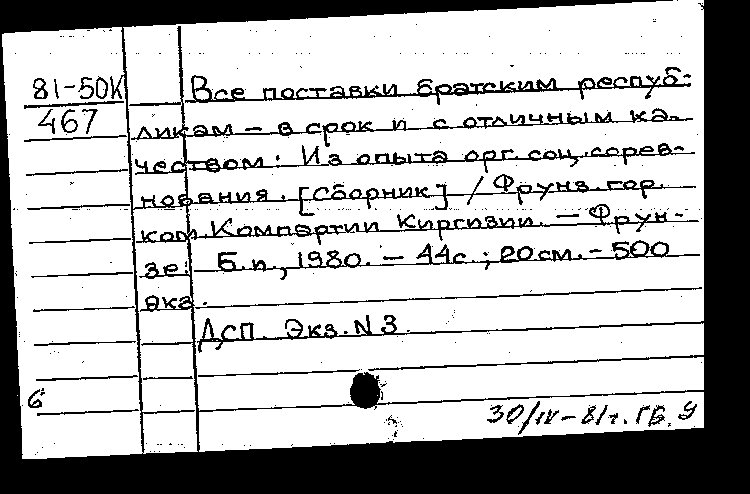 81-50К Все поставки братским респуб-
467 ликам – в срок и с отличным ка-
чеством: Из опыта орг. соц. сорев-
нования. [Сборник] / Фрунз. гор.
ком. Компартии Киргизии. – Фрун-
зе: Б.и., 1980. – 44с.; 20см. – 500
экз.
ДСП. Экз. N 3.
6
30/IV–81г. ГБ. У